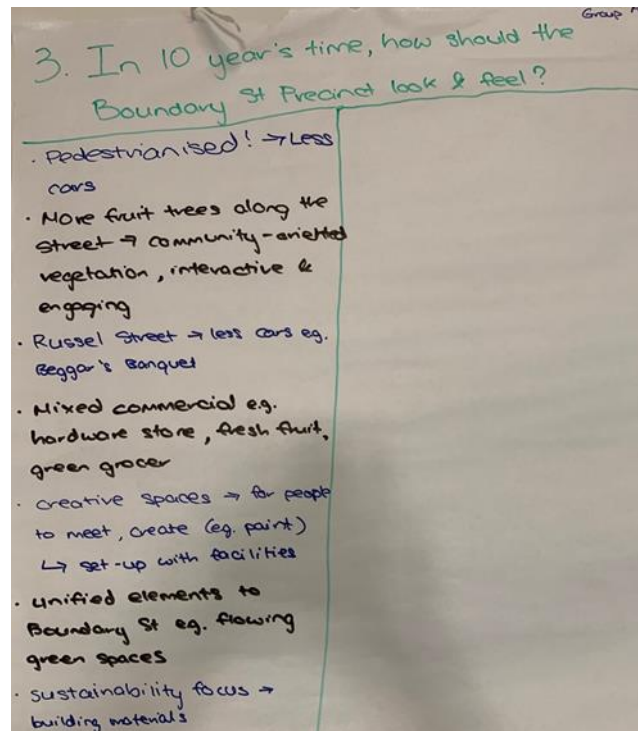 Group
3. In 10 year's time, how should the
Boundary St Precinct look & feel?
· Pedestrianised! → Less
cars
· More fruit trees along the
street → community-oriented
vegetation, interactive &
engaging
· Russel Street → less cars eg.
Beggar's Banquet
· Mixed commercial e.g.
hardware store, fresh fruit,
green grocer
· creative spaces → for people
to meet, create (eg. paint)
↳ set-up with facilities
· unified elements to
Boundary St eg. flowing
green spaces
· sustainability focus →
building materials